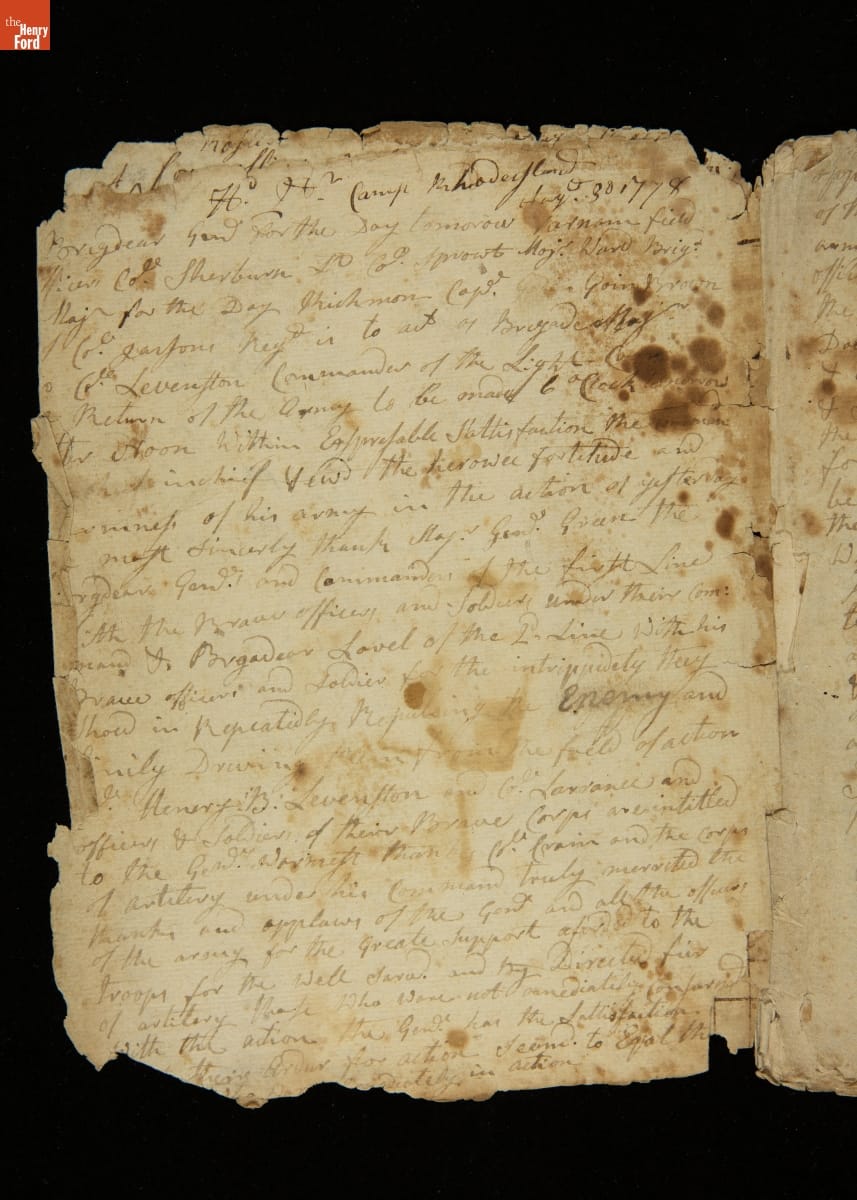 the
Henry
Ford
Hd Qtr Camp Rhodeisland
Augt 30 1778
Brigdear Genl For the Day tomorow Varnam field
officers Col. Sherburn Lt Col. Sprowt Majr. Ward Brigr
Majr for the Day Richmon Capt. Goin Brown
Col. Parsons Regt is to act as Brigade Majr
Col. Levenston Commander of the Light
Return of the Army to be made 6 o Clock tomorrow
Noon Within Expresable Sattisfaction the
inchief the herowec fortitude and
of his army in the action of yesterday
most Sincerly thank Majr Genl. Green the
Genls and Commanders of the first Line
With the Brave officers and Soldiers under their Com:
mand & Brgadear Lovel of the 2d Line With his
Brave officers and Soldier for the intrippidety they
Shoed in Repeatedly Repulsing the Enemy and
Driveing them from the field of action
Henery B: Levenston and Col. Larrance and
officers & Soldiers of theire Brave Corps are intitled
to the Genls Warmest thanks Col. Crain and the Corps
of artilery under his Command truly merrited the
thanks and applaws of the Genl and all the officers
of the army for the Greate Support aforded to the
troops for the Well Sarvd and Directed fier
of artilery those Who ware not imediately consarnd
With the action the Genl has the Sattisfaction
there Ardur for action Seemd to Eqal
in action